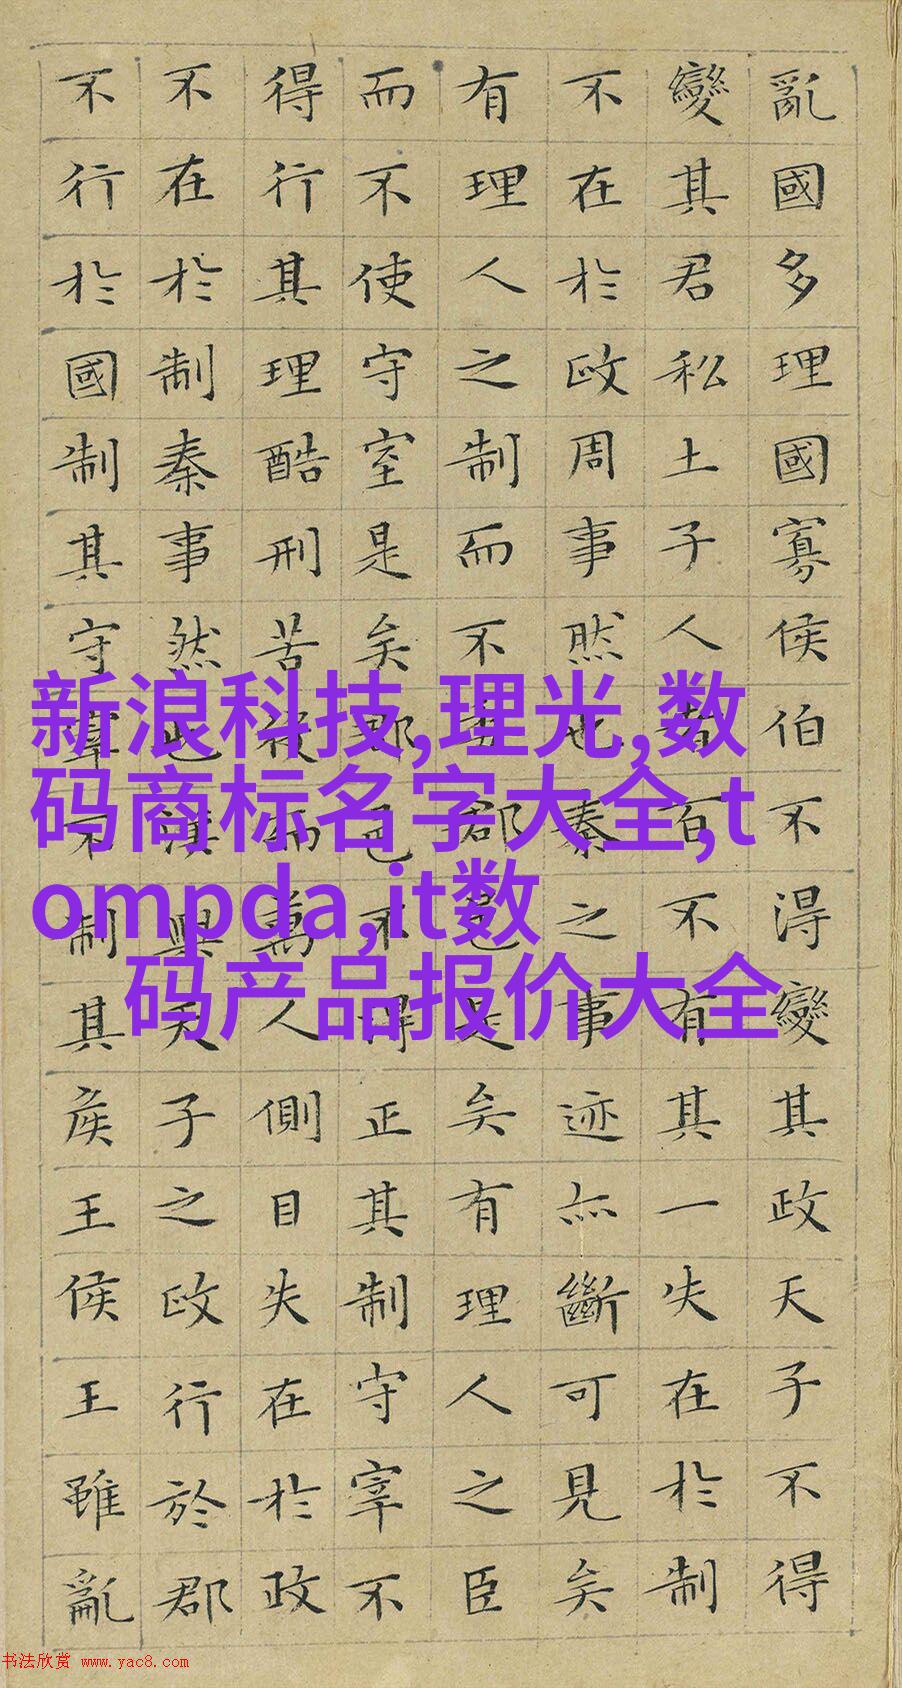 亂國多理國寡侯伯不得變其政天子不得
變其君私土子人者百不有其一失在於制
不在於政周事然也秦之事迹亦斷可見矣
有理人之制而不委郡邑是矣有理人之臣
而不使守宰是矣郡邑不得正其制守宰不
得行其理酷刑苦役而萬人側目失在於政
不在於制秦事然也漢興天子之政行於郡
不行於國制其守宰不制其侯王侯王雖亂
新浪科技,理光,数
码商标名字大全,t
ompda,it数
码产品报价大全
书法欣赏 www.yac8.com